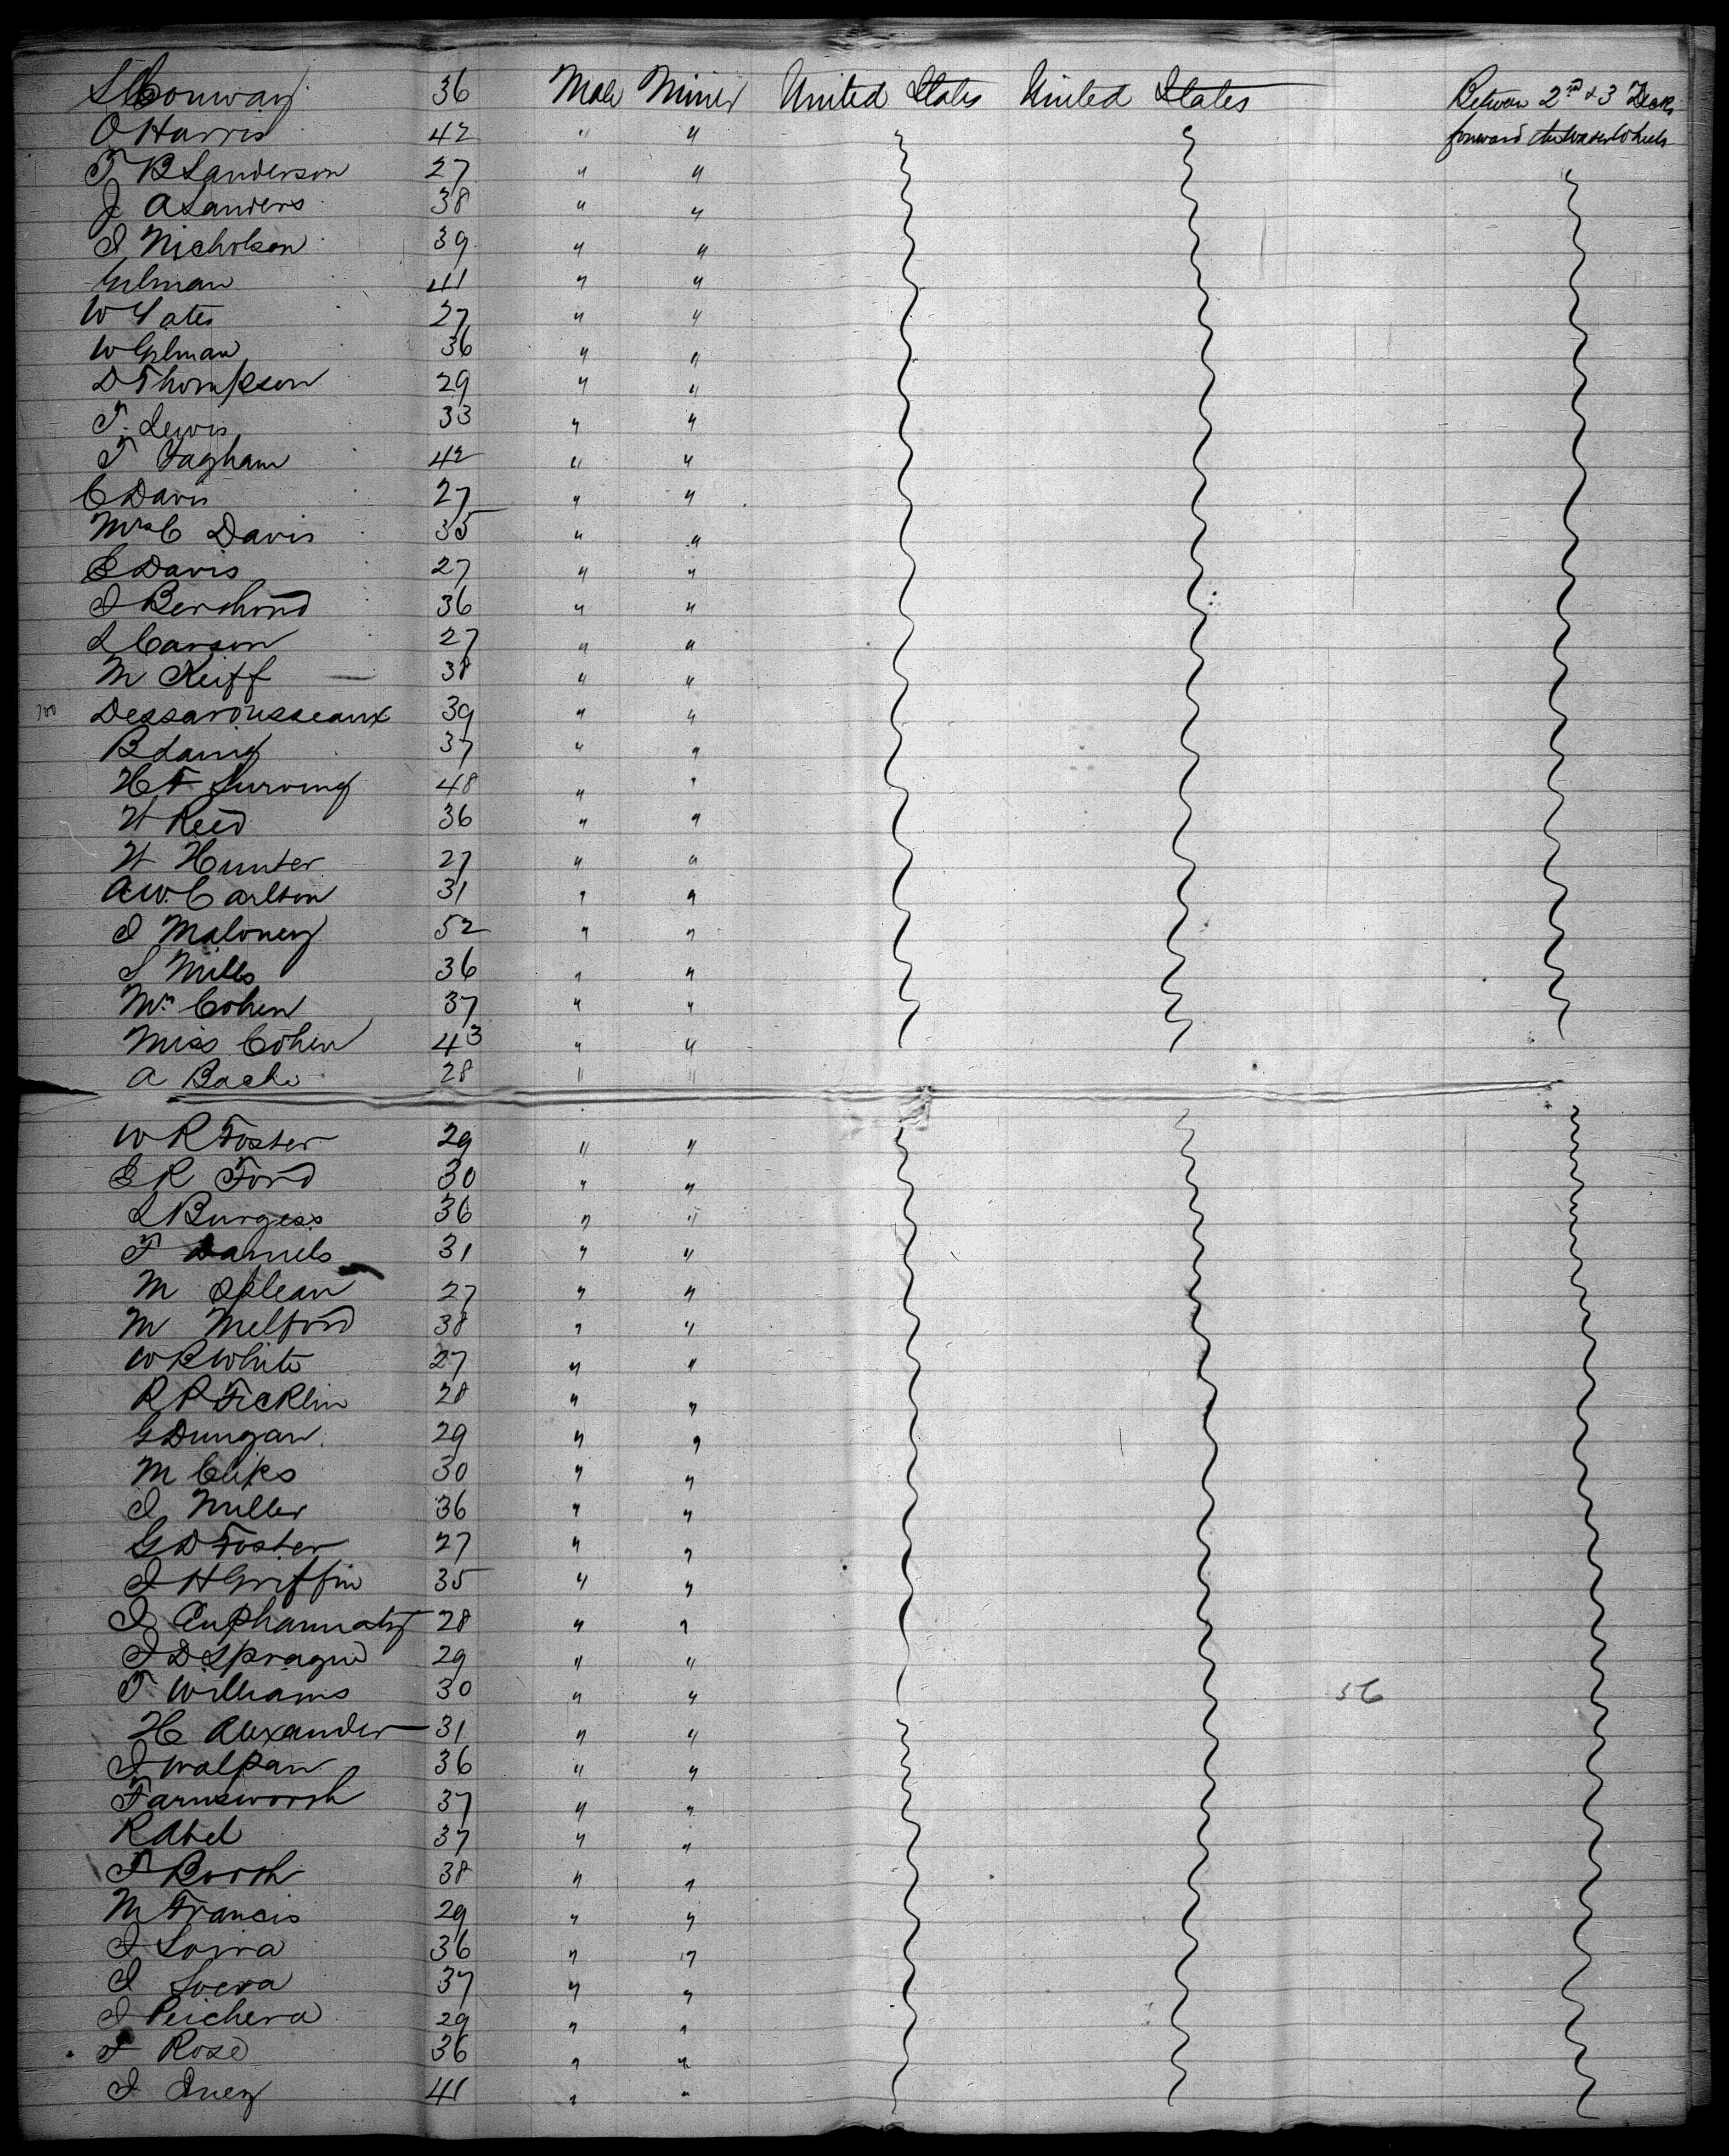 S Conway 36 Male Miner United States United States Between 2nd & 3 Decks
O Harris 42 " " forward the Water Wheels
T B Sanderson 27 " "
J A Sanders 38 " "
J Nicholson 39 " "
Gilman 41 " "
W Yates 27 " "
W Gilman 36 " "
D Thompson 29 " "
T. Lewis 33 " "
T Fagham 42 " "
C Davis 27 " "
Mrs C Davis 35 " "
E Davis 27 " "
J Berthond 36 " "
L Carson 27 " "
M Keiff 38 " "
700 Dessarousseaux 39 " "
B Laing 37 " "
H F Surving 48 " "
H Reed 36 " "
H Hunter 27 " "
A.W. Carlton 31 " "
J Maloney 52 " "
S Mills 36 " "
Mrs Cohen 37 " "
Miss Cohen 43 " "
A Bache 28 " "
W R Foster 29 " "
E R Ford 30 " "
L Burgess 36 " "
T Daniels 31 " "
M 27 " "
M Melford 38 " "
W R White 27 " "
R P Ficklin 28 " "
G Dungan 29 " "
M Cups 30 " "
J Miller 36 " "
G D Foster 27 " "
J H Griffin 35 " "
J 28 " "
J D Sprague 29 " "
T Williams 30 " " 56
H Alexander 31 " "
J Walpan 36 " "
Farnsworth 37 " "
R Abel 37 " "
T Booth 38 " "
M Francis 29 " "
J 36 " "
J 37 " "
J Peichera 29 " "
F Rose 36 " "
J 41 " "